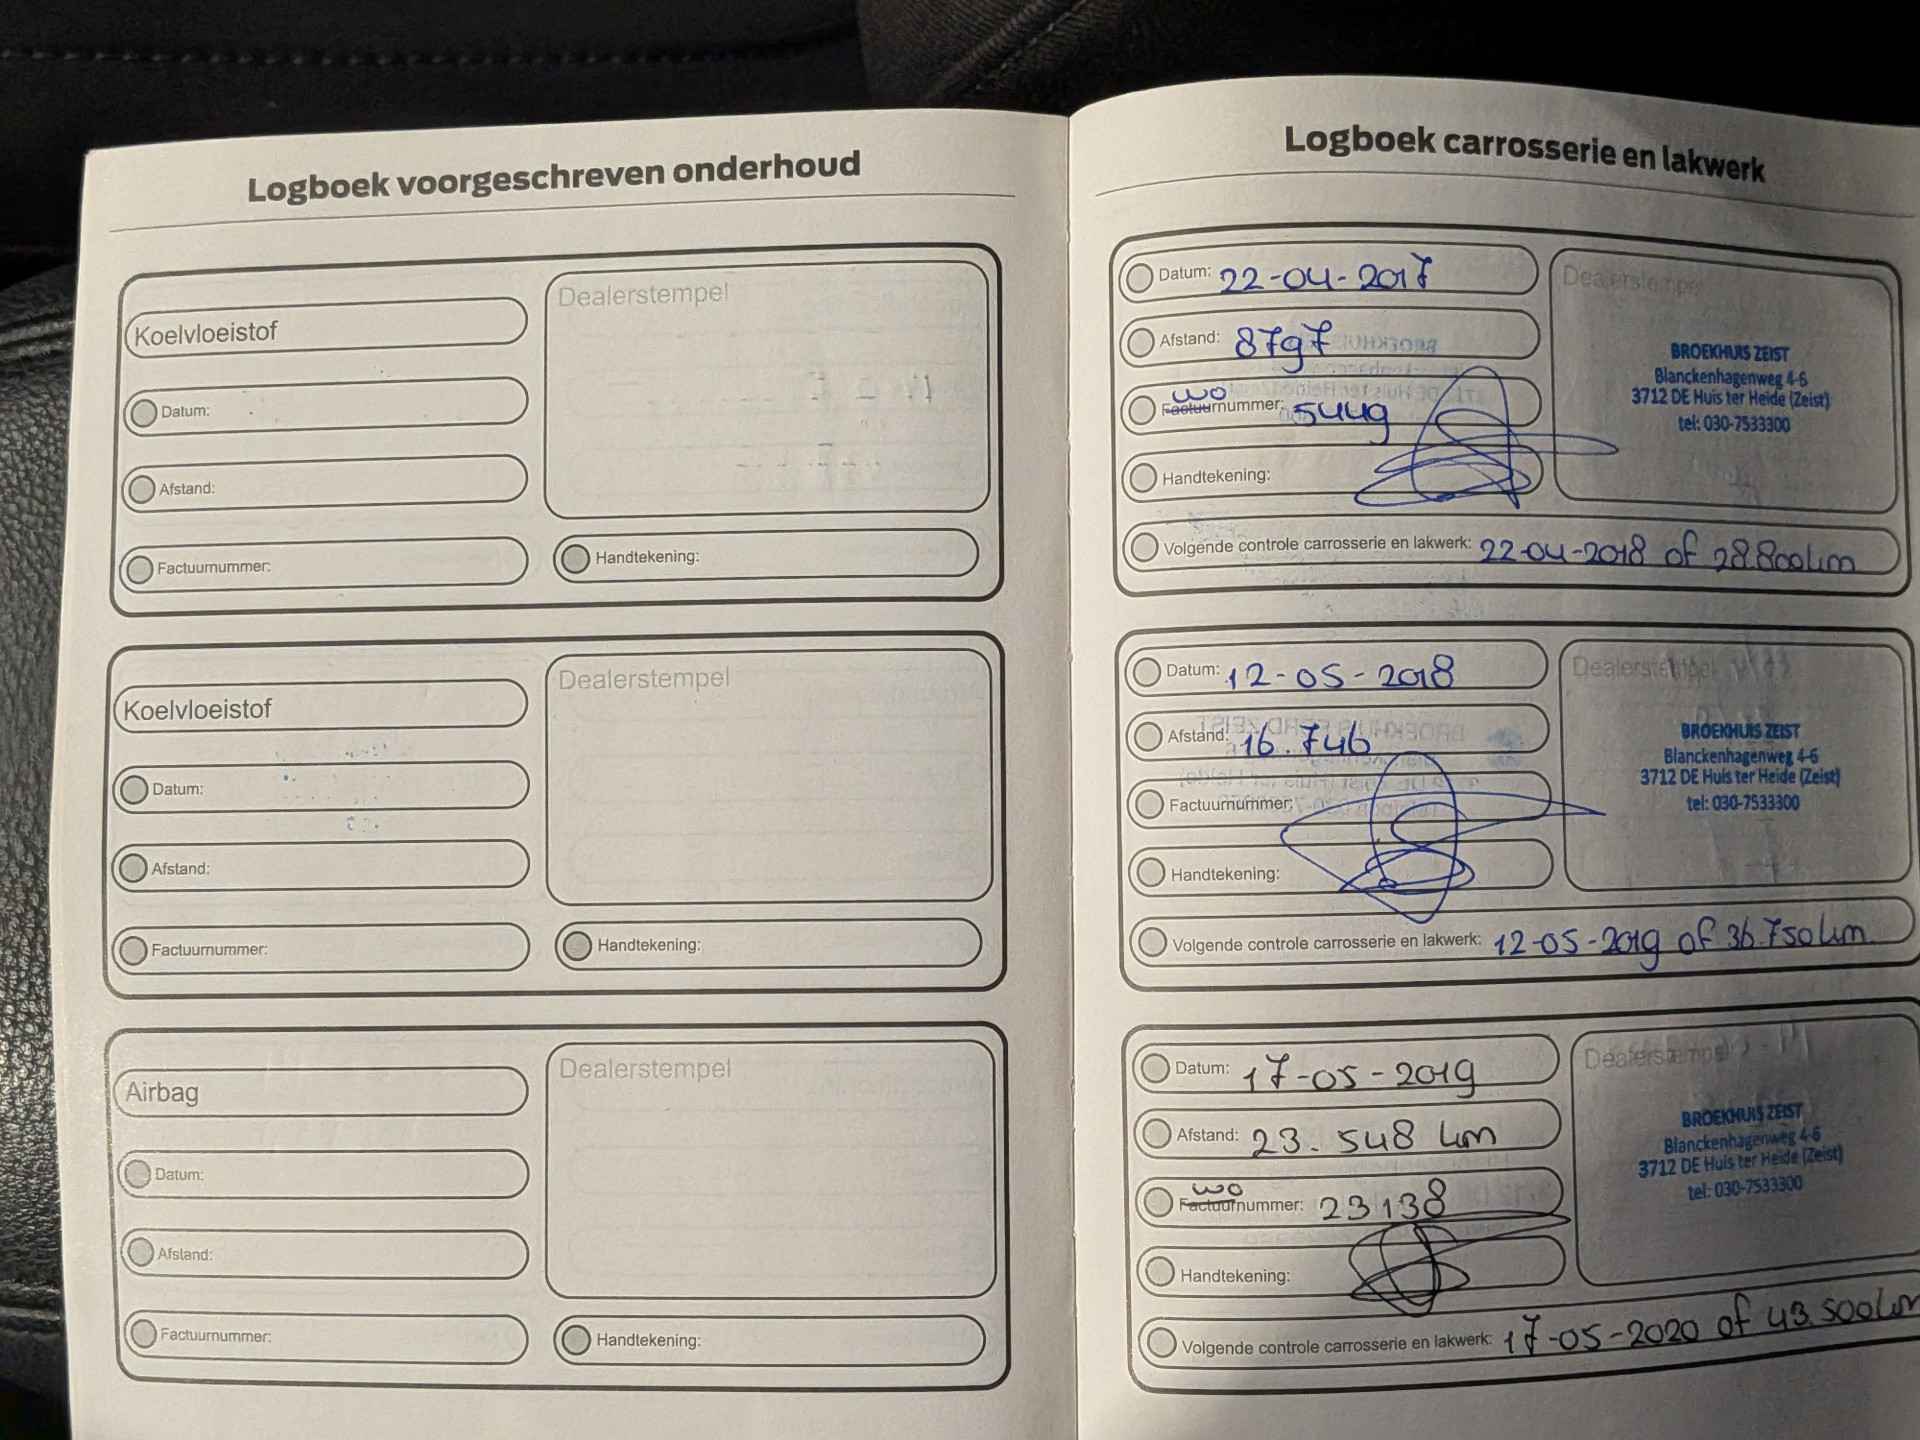 Logboek voorgeschreven onderhoud
Koelvloeistof
Dealerstempel
Datum:
Afstand:
Factuurnummer:
Handtekening:
Koelvloeistof
Dealerstempel
Datum:
Afstand:
Factuurnummer:
Handtekening:
Airbag
Dealerstempel
Datum:
Afstand:
Factuurnummer:
Handtekening:
Logboek carrosserie en lakwerk
Datum: 22-04-2017
Afstand: 8797
wo
Factuurnummer: 5449
Handtekening:
Dealerstempel
BROEKHUIS ZEIST
Blanckenhagenweg 4-6
3712 DE Huis ter Heide (Zeist)
tel: 030-7533300
Volgende controle carrosserie en lakwerk: 22-04-2018 of 28.800km
Datum: 12-05-2018
Afstand: 16.746
Factuurnummer:
Handtekening:
Dealerstempel
BROEKHUIS ZEIST
Blanckenhagenweg 4-6
3712 DE Huis ter Heide (Zeist)
tel: 030-7533300
Volgende controle carrosserie en lakwerk: 12-05-2019 of 36.750km
Datum: 17-05-2019
Afstand: 23.548 km
wo
Factuurnummer: 23138
Handtekening:
Dealerstempel
BROEKHUIS ZEIST
Blanckenhagenweg 4-6
3712 DE Huis ter Heide (Zeist)
tel: 030-7533300
Volgende controle carrosserie en lakwerk: 17-05-2020 of 43.500km